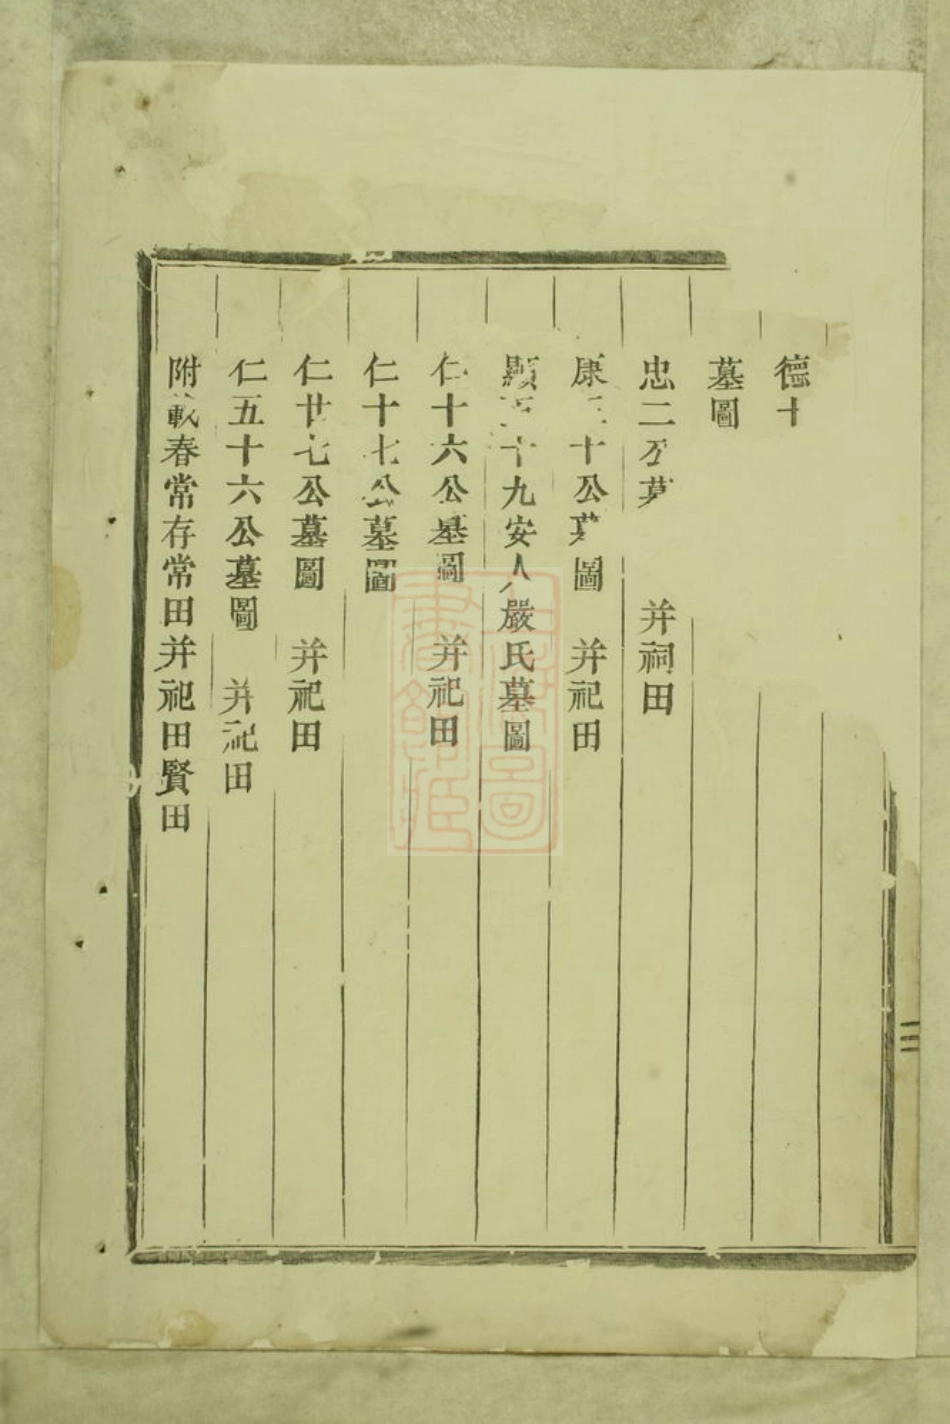 德十
墓圖
忠二公墓 并祠田
康三十公墓圖 并祀田
顯百十九安人嚴氏墓圖
仁十六公墓圖 并祀田
仁十七公墓圖
仁廿七公墓圖 并祀田
仁五十六公墓圖 并祀田
附載春常存常田并祀田賢田